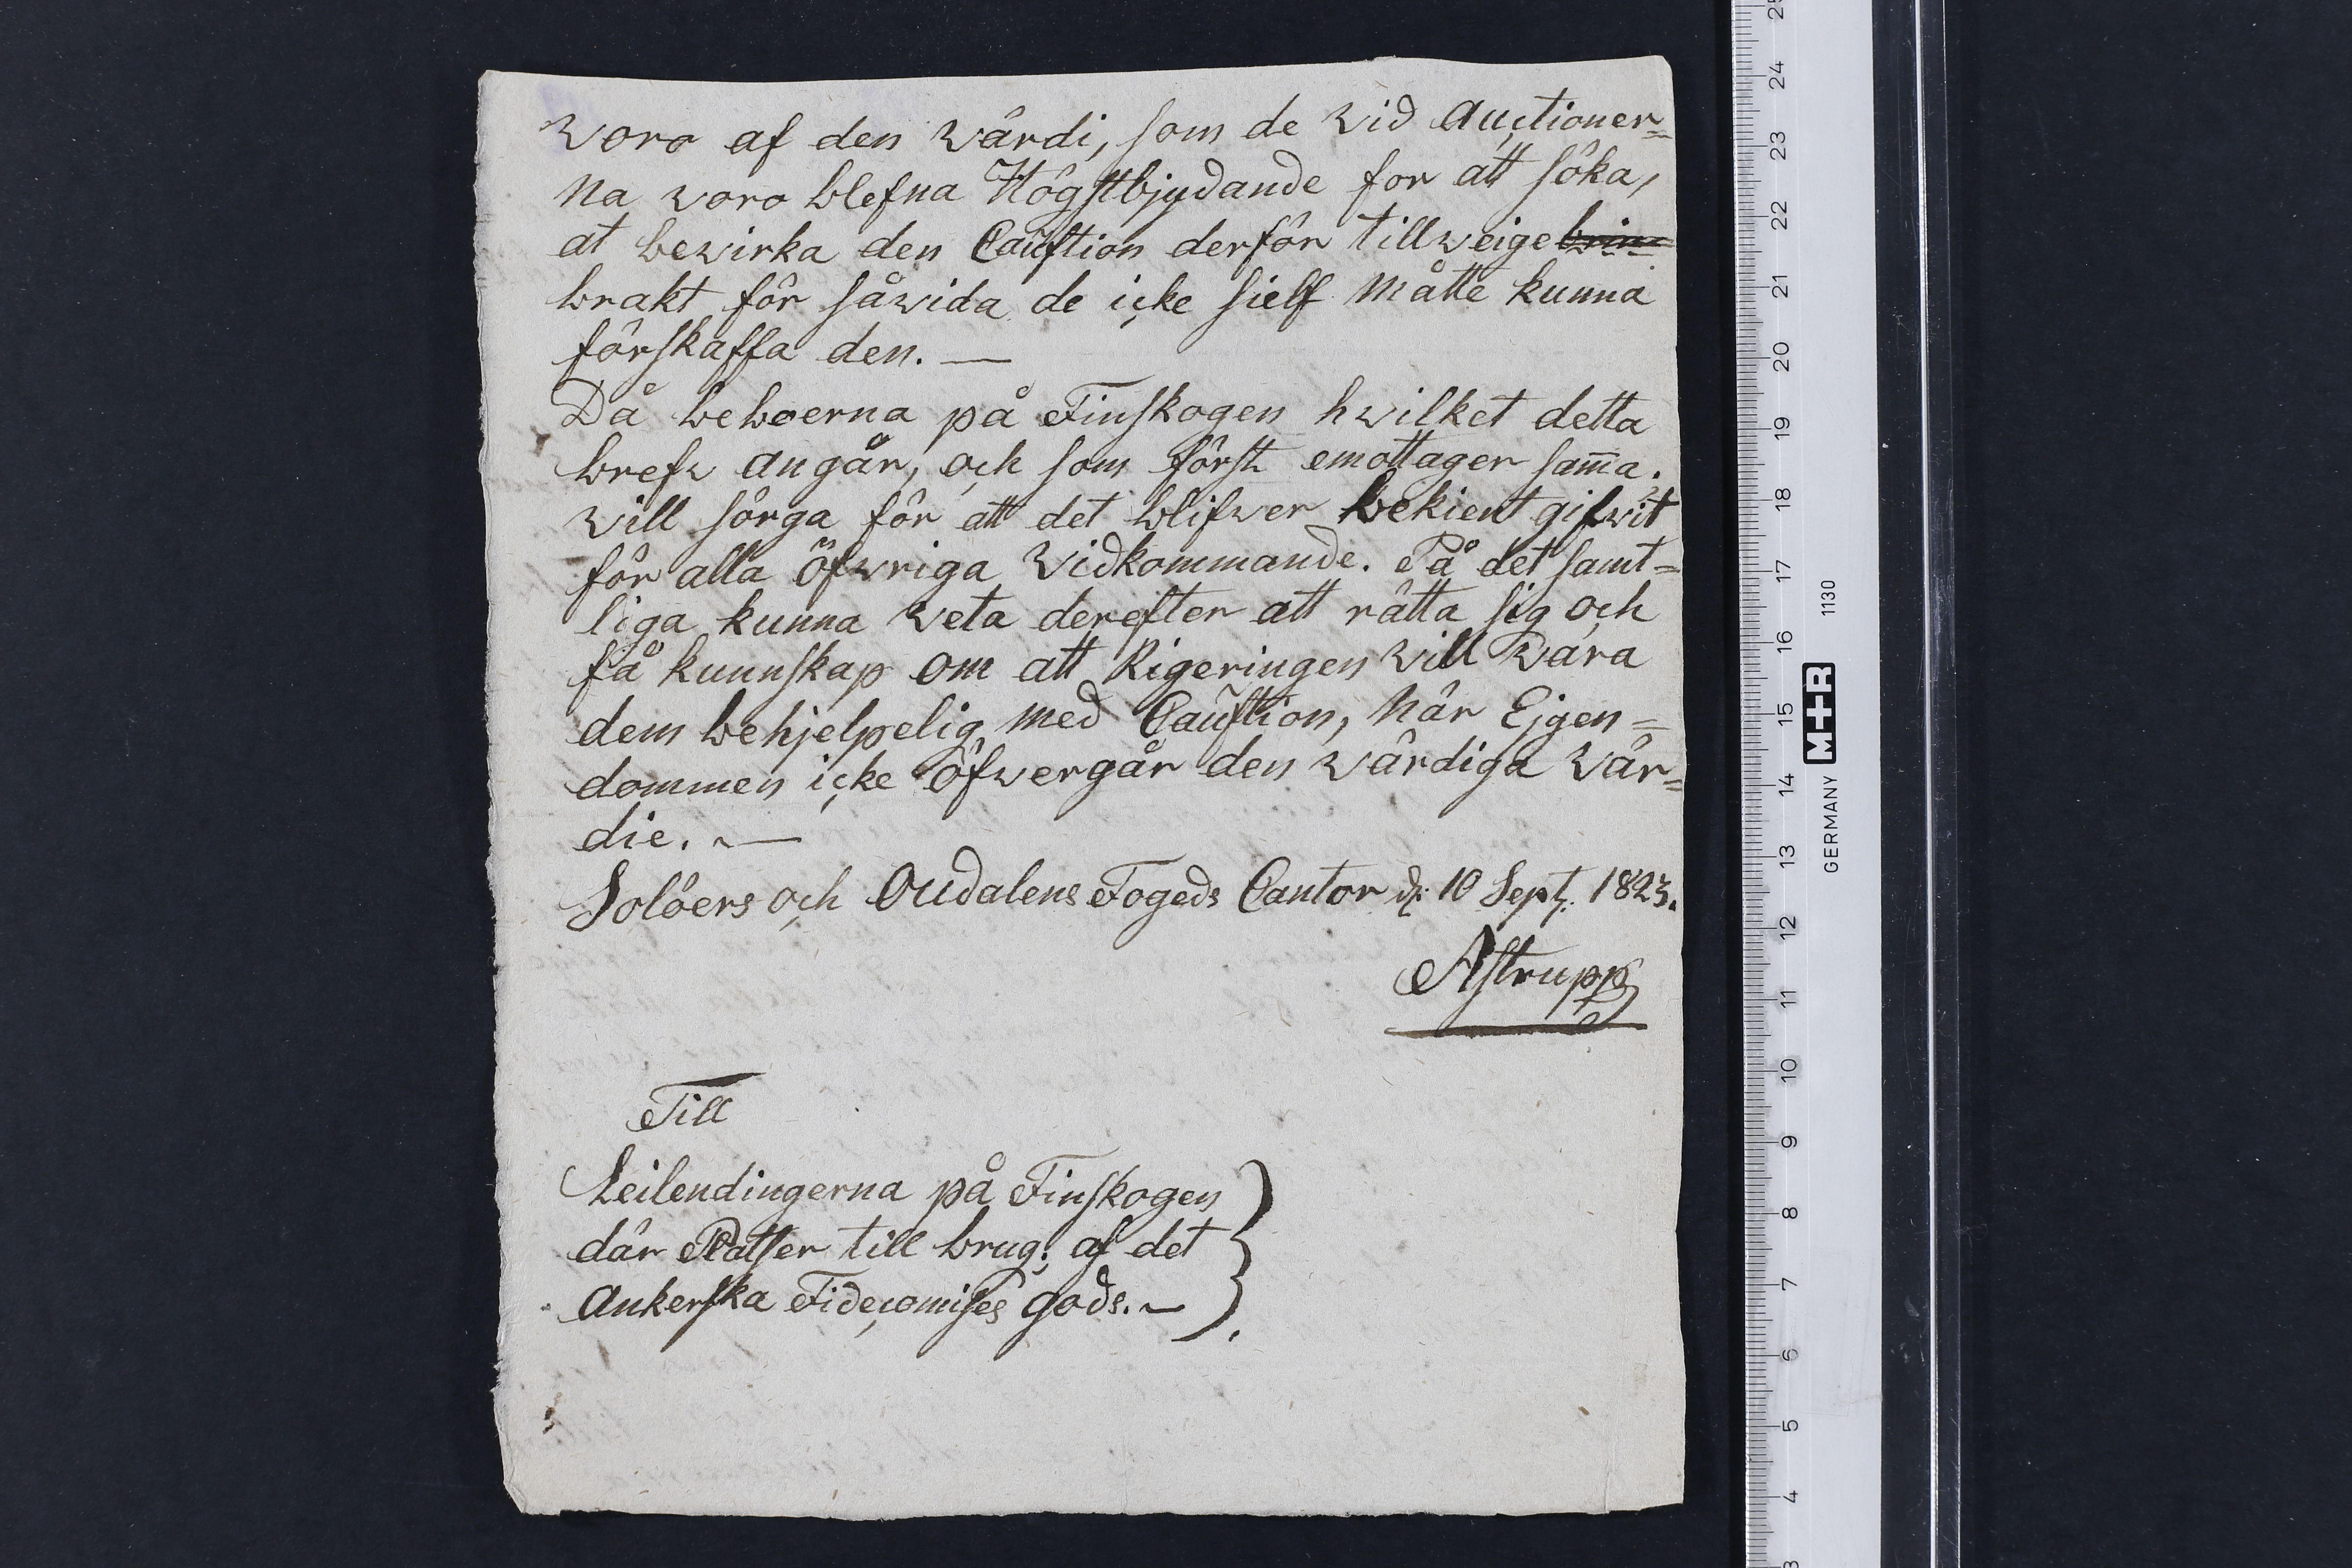 woro af den wärdi, som de wid auctioner=
na woro blefna Högstbjudande for att söka,
at bewirka den Caustion derför tillweige brin=
brakt för såwida de icke sielf måtte kunna
förskaffa den. —
Då beboerna på Finskogen hwilket detta
brefw angår, och som först emottager sam̄a.
will sörga för att det blifwer bekient gifwit
för alla öfwriga widkommande. På det samt=
liga kunna weta derefter att rätta sig och
få kunnskap om att Rigeringen will wara
dem behjelpelig med Caustion, när Ejgen=
dommen icke öfwergår den wärdiga wär=
die. —
Solöers och Oudalens Fogeds Cantor d: 10 Sept. 1823.
Astrupp
Till
Leilendingerna på Finskogen
där Platser till brug: af det
Ankerska Fidecomises gods. —
25
24
23
22
21
20
19
18
17
16
15
14
13
12
11
10
9
8
7
6
5
4
3
GERMANY M+R 1130